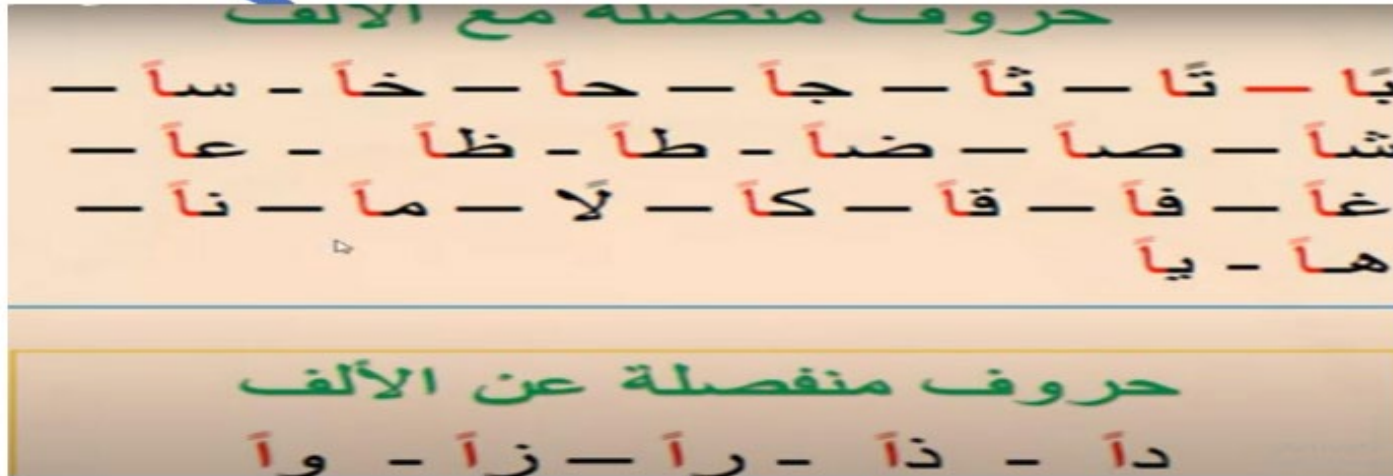 حروف متصلة مع الألف
بًا – تًا – ثاً – جاً – حاً – خاً - ساً –
شاً – صاً – ضاً - طاً - ظاً - عاً –
غاً – فاً – قاً – كاً – لًا – ماً – ناً –
هاً - ياً
حروف منفصلة عن الألف
داً - ذاً - راً – زاً - واً